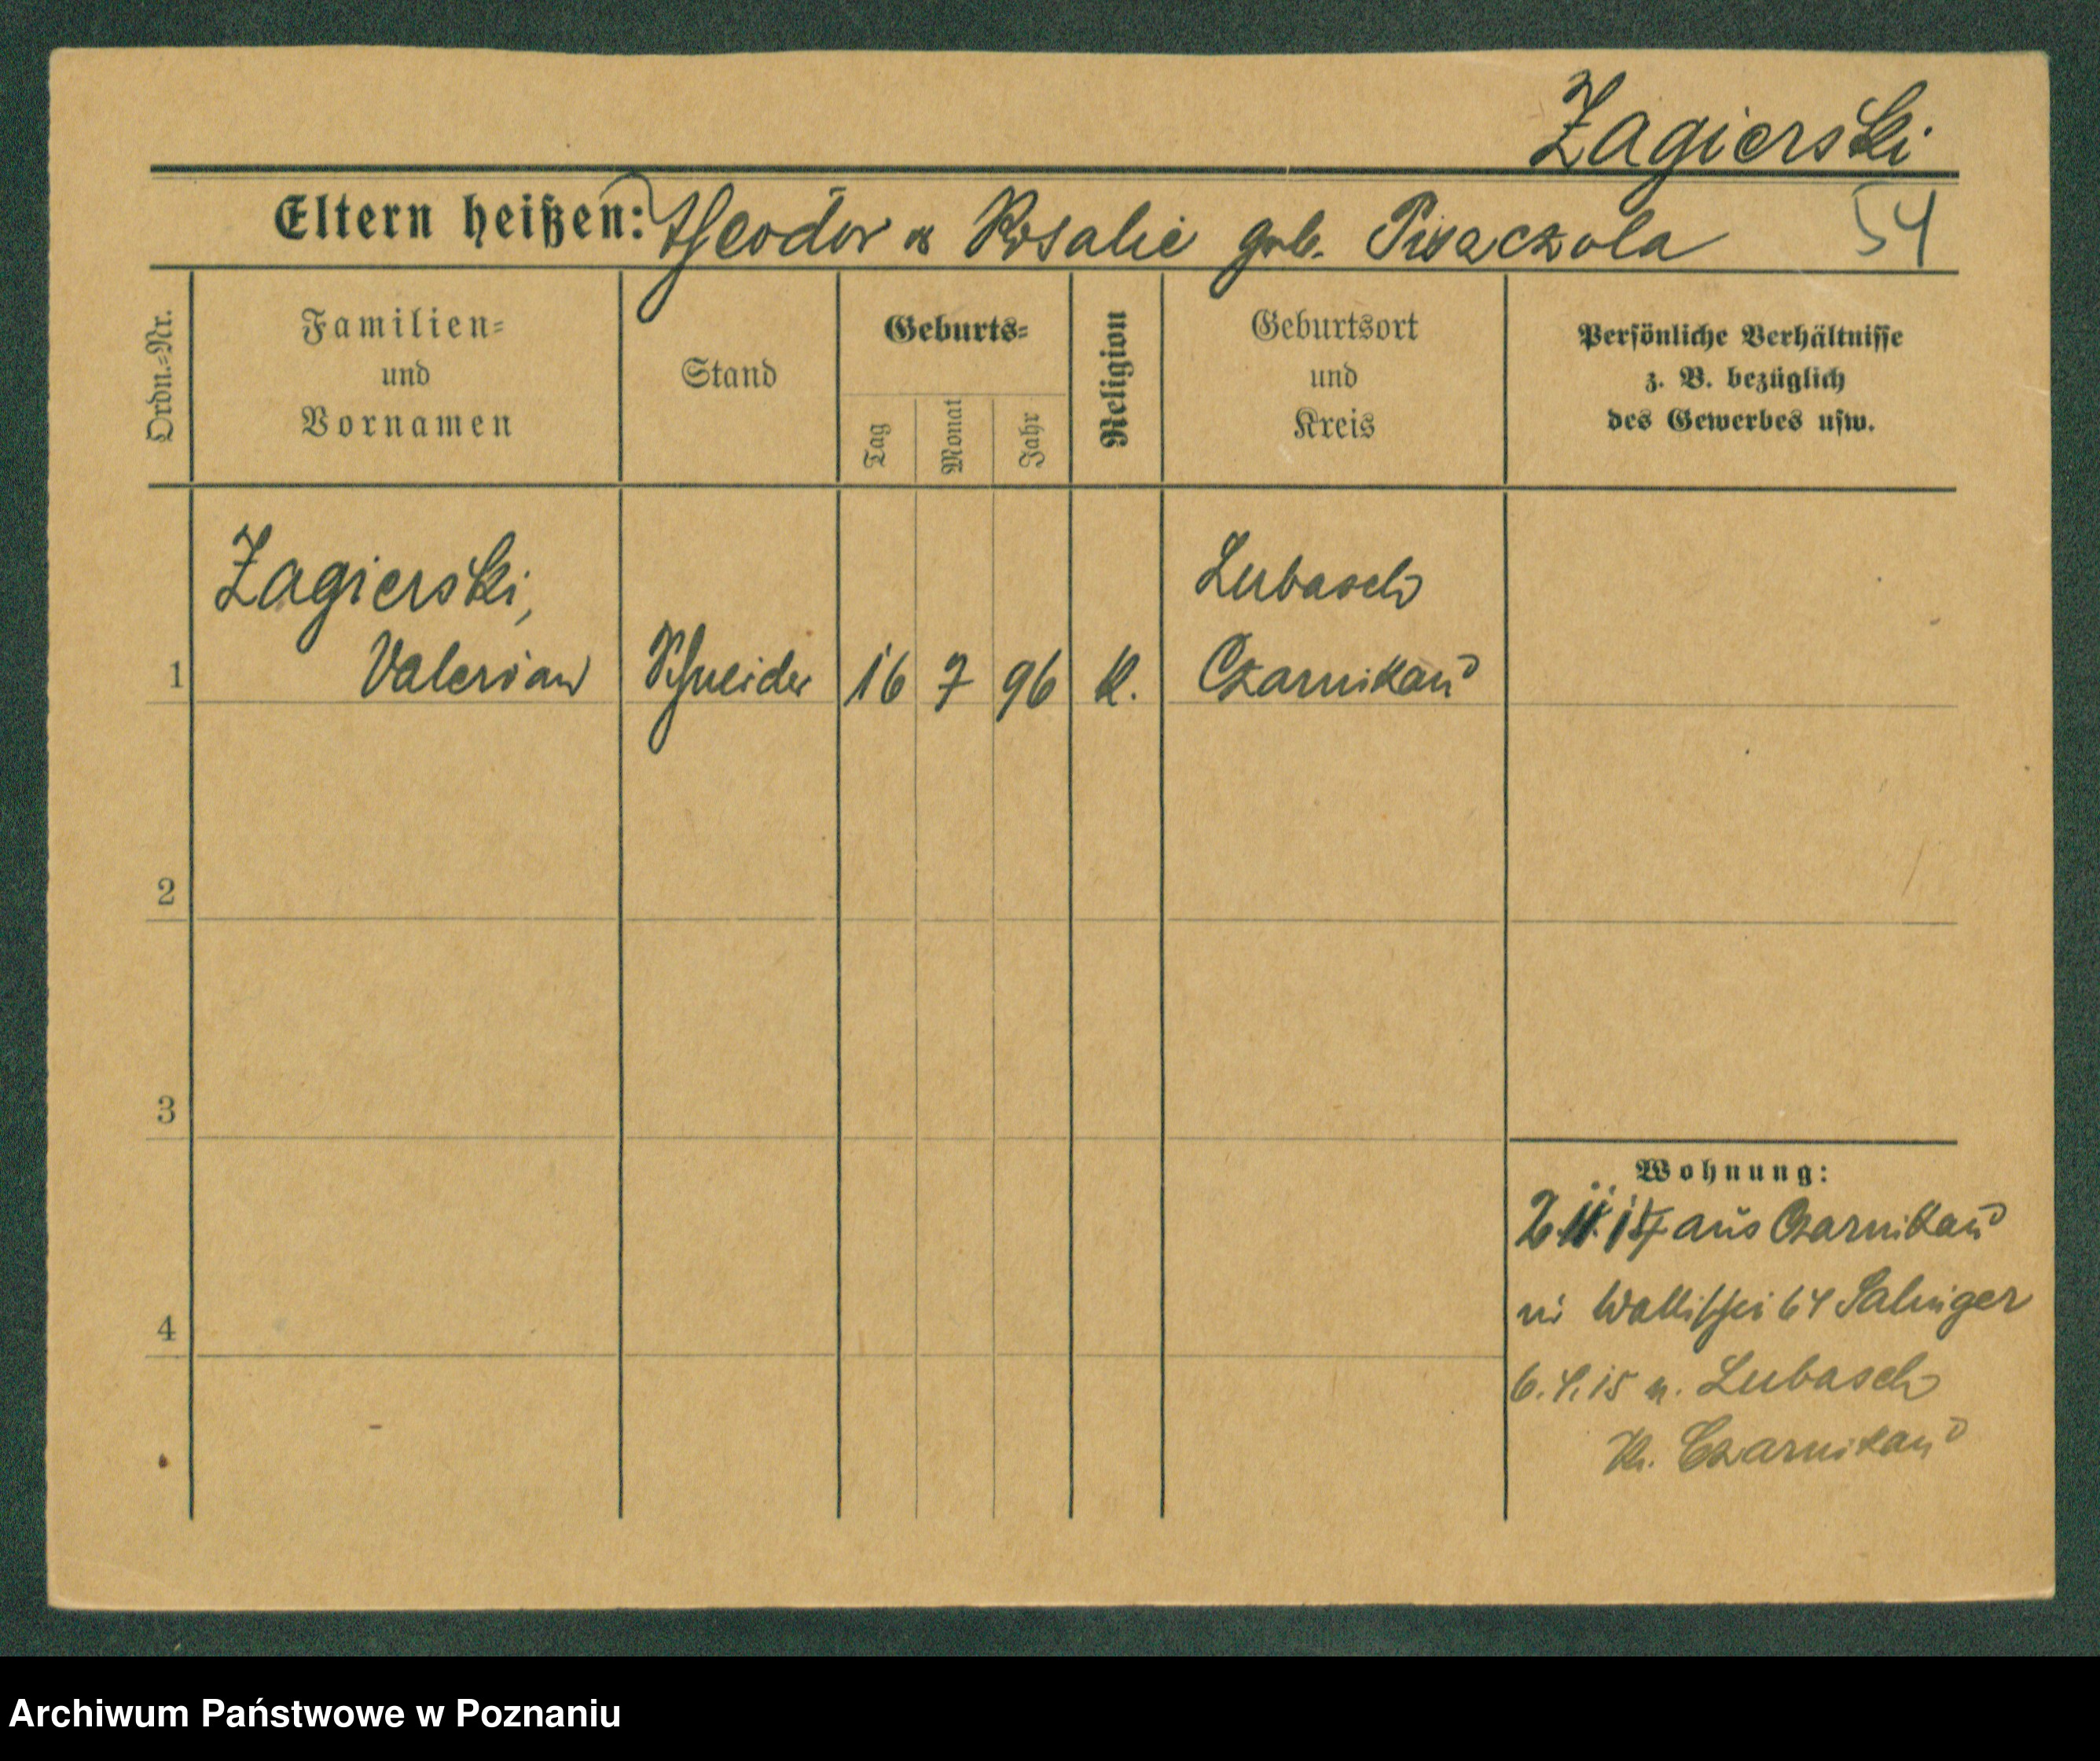 Zagierski
Eltern heißen: Theodor u Rosalie geb. 54
Ordn.=Nr.
Familien=
und
Vornamen
Stand
Geburts=
Tag
Monat
Jahr
Religion
Geburtsort
und
Kreis
Persönliche Verhältnisse
z. B. bezüglich
des Gewerbes usw.
Zagierski,
Lubasch
1 Valerian Schneider 16 7 96 k. Czarnikau
2
3
4
Wohnung:
aus Czarnikau
Wallischei 64 Salinger
6.4.15 n. Lubasch
Kr. Czarnikau
Archiwum Państwowe w Poznaniu